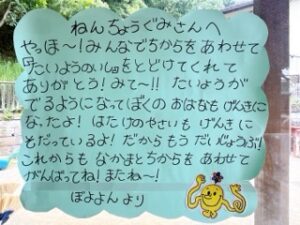 ねんちょうぐみさんへ
やっほ〜！みんなでちからをあわせて
『たいようのいし』をとどけてくれて
ありがとう！みて〜!! たいようが
でるようになってぼくのおはなもげんきに
なったよ！はたけのやさいもげんきに
そだっているよ！だからもうだいじょうぶ！
これからもなかまとちからをあわせて
がんばってね！またね〜！
ぽよよんより